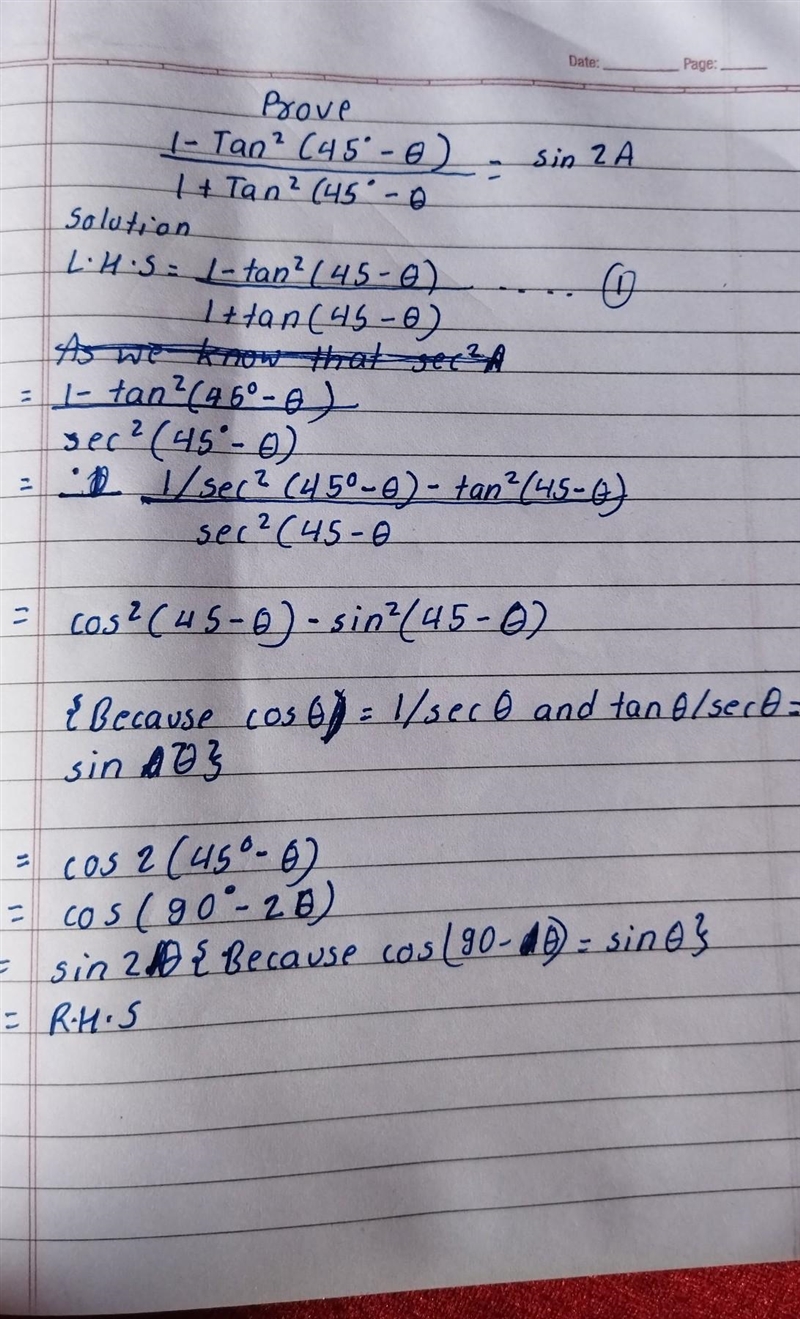 Date: ________ Page: _____
Prove
1 - Tan² (45° - θ) = sin 2A
1 + Tan² (45° - θ
Solution
L.H.S = 1 - tan² (45 - θ) ..... ①
1 + tan (45 - θ)
As we know that sec² A
= 1 - tan² (45° - θ)
sec² (45° - θ)
= 1/sec² (45° - θ) - tan² (45 - θ)
sec² (45 - θ
= cos² (45 - θ) - sin² (45 - θ)
{Because cos θ) = 1/sec θ and tan θ/sec θ =
sin θ}
= cos 2 (45° - θ)
= cos (90° - 2θ)
= sin 2θ {Because cos (90 - θ) = sin θ}
= R.H.S